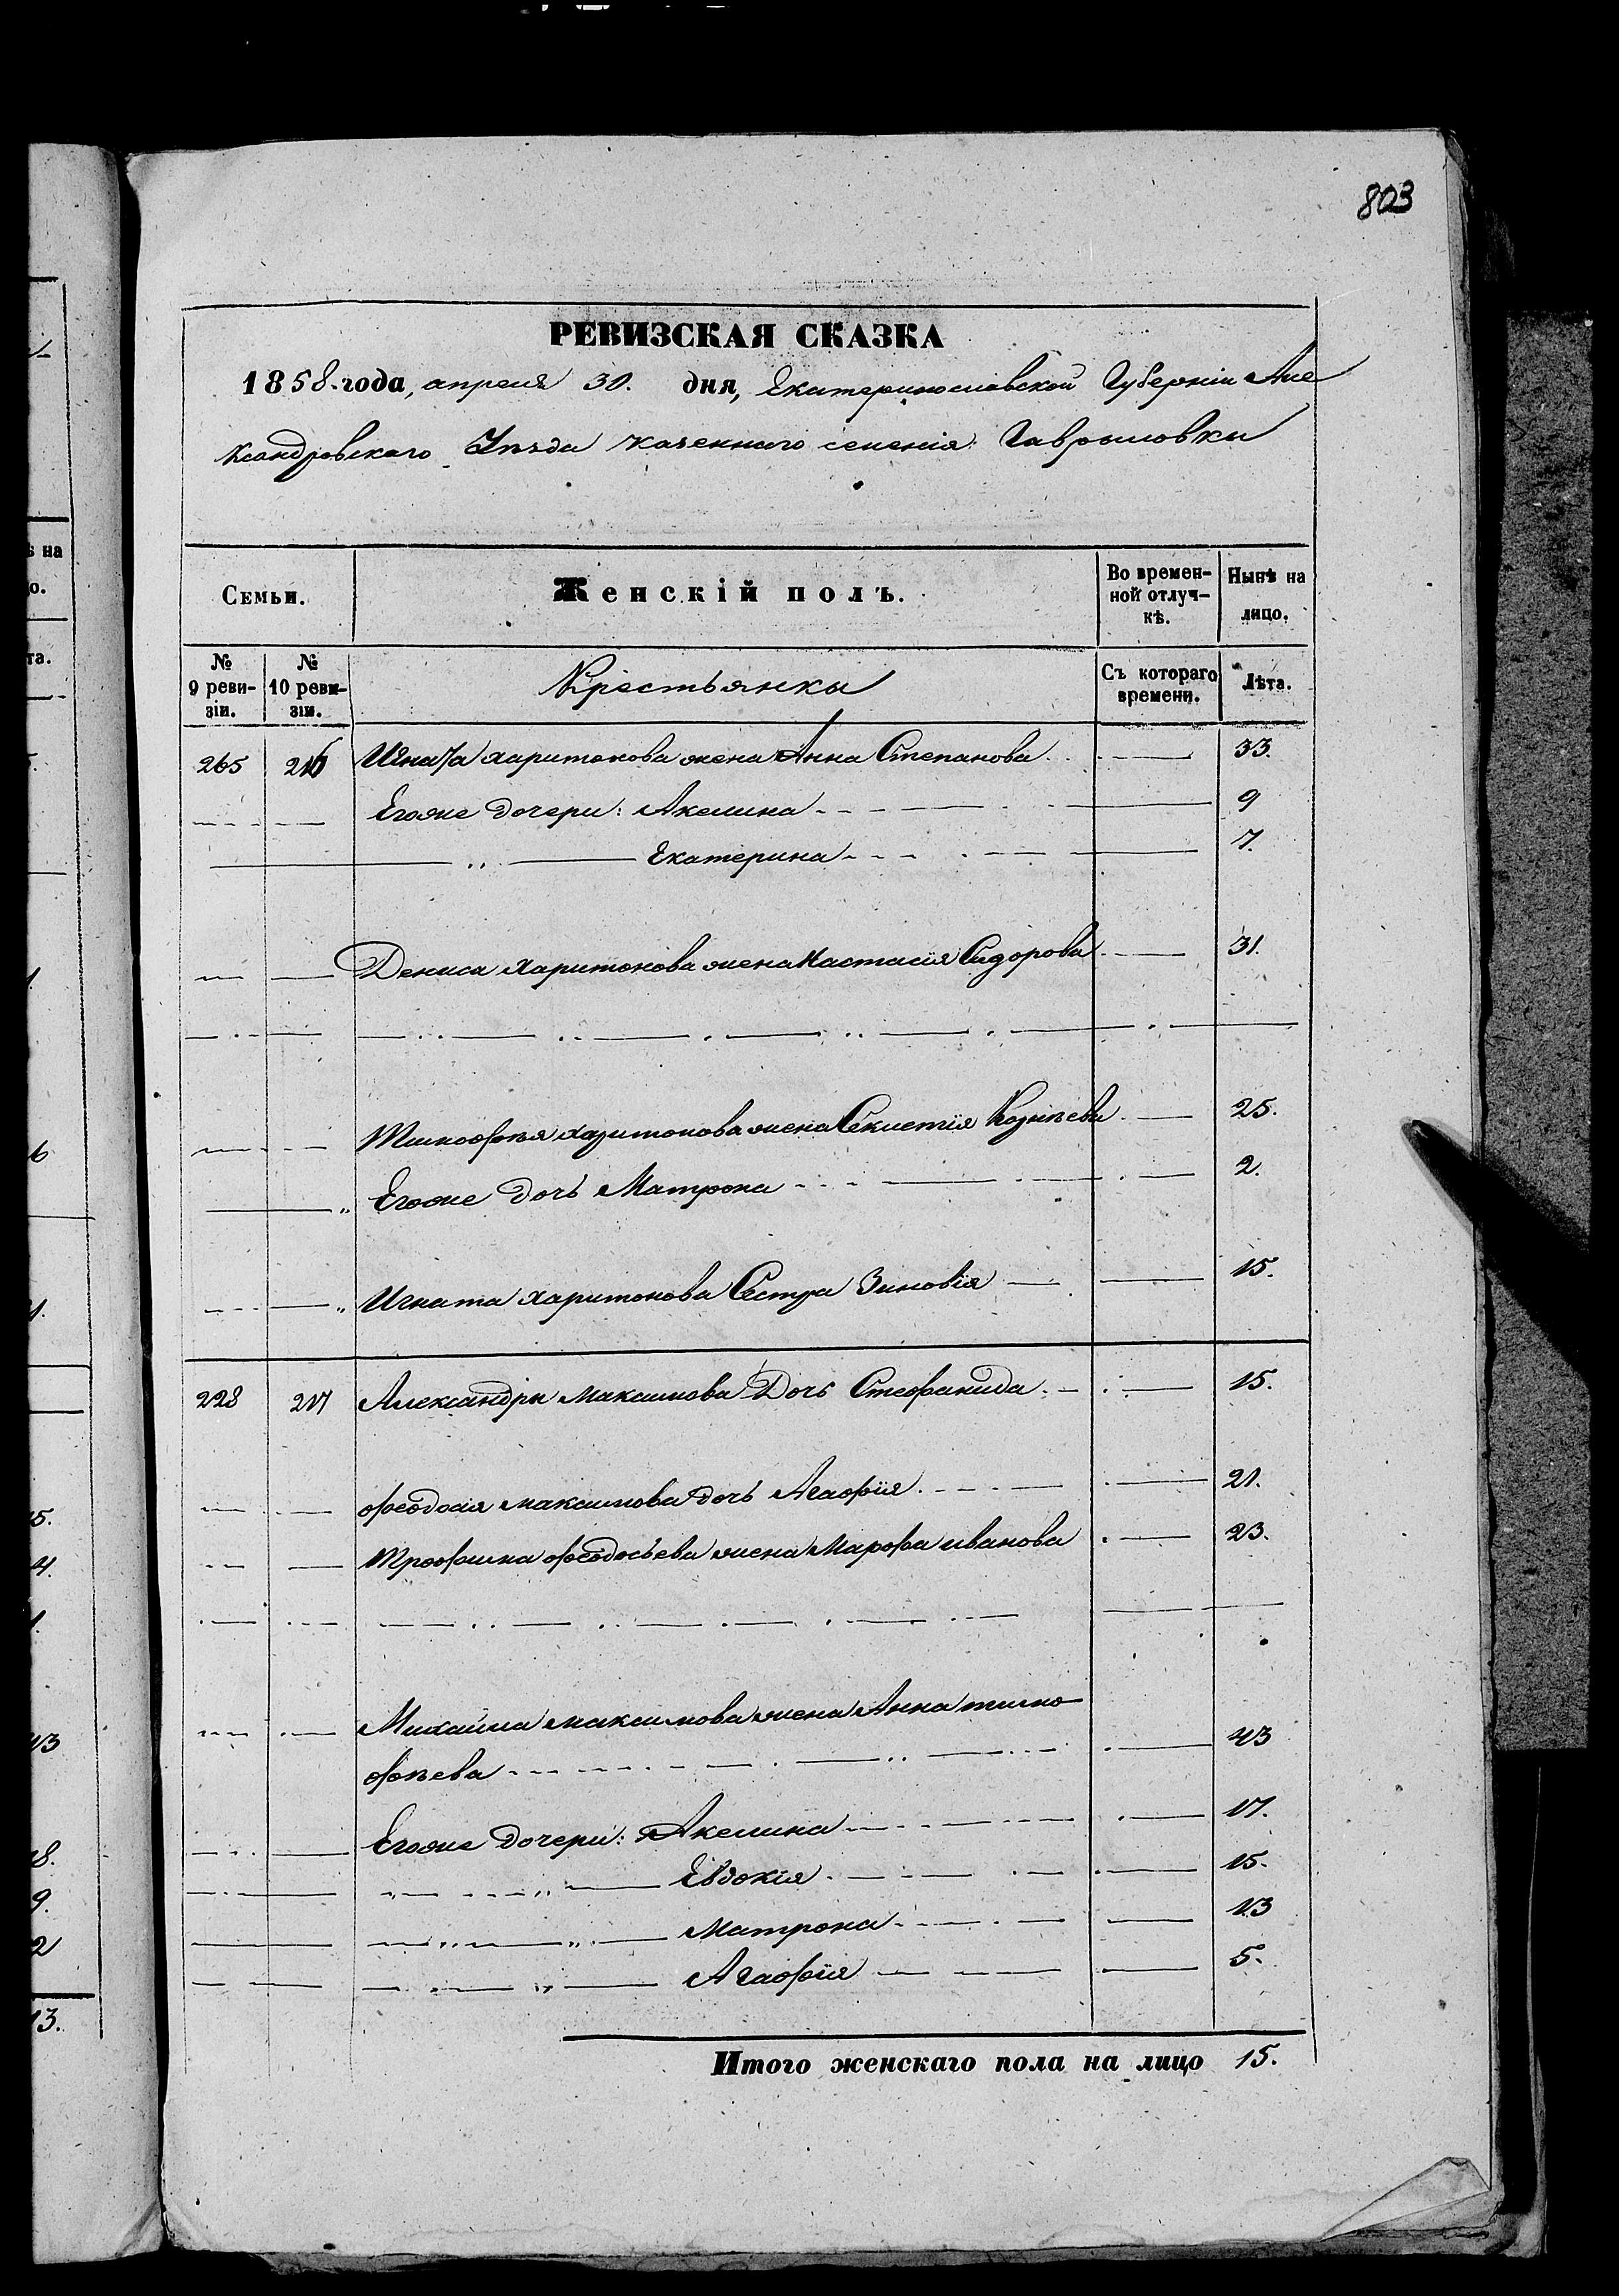 803
РЕВИЗСКАЯ СКАЗКА
1858 года, апреля 30. дня, Екатеринославской Губерніи Але
ксандровскаго Уѣзда казеннаго селенія Гавриловки
Семьи. Женскій полъ. Во времен-ной отлуч-кѣ. Нынѣ на лицо.
№ 9 реви-зіи. № 10 реви-зіи. Крестьянки Съ котораго времени. Лѣта.
265 216 Игната харитонова жена Анна Степанова 33.
Егоже дочери: Акелина 9
Екатерина 7.
Дениса харитонова жена Настасія Сидорова 31.
Тимофѣя харитонова жена 25.
Егоже дочь Матрона 2.
Игната харитонова Сестра Зиновія 15.
228 217 Александры максимова Дочь Стефанида 15.
феодосія максимова дочь Агафія 21.
Трофима феодосьева жена Марфа иванова 23.
Михайла максимова жена Анна тимо
фѣева 43
Егоже дочери: Акелина 17.
Евдокія 15.
Матрона 13
Агафія 5.
Итого женскаго пола на лицо 15.